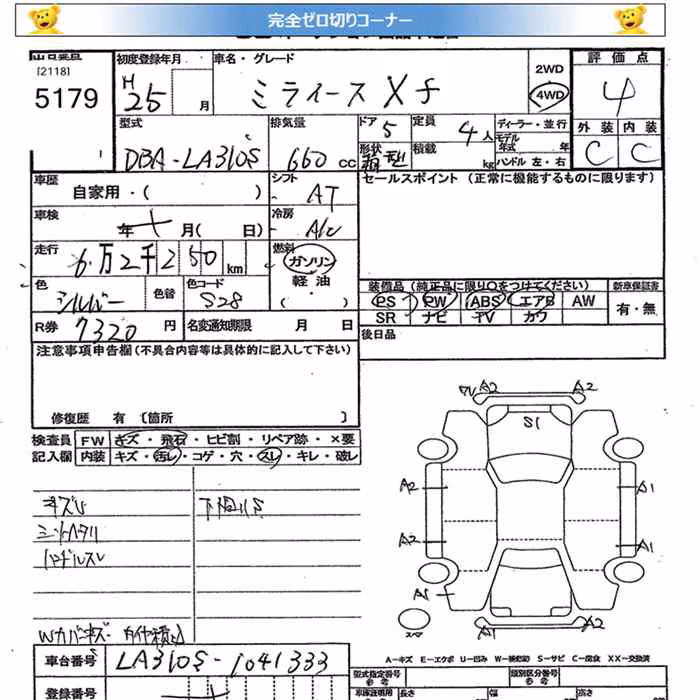 完全ゼロ切りコーナー
[2118]
5179
初度登録年月
H 25 月
車名・グレード
ミライース Xf
2WD
4WD
評価点
4
外装 内装
C C
型式
DBA-LA310S
排気量
660 cc
ドア 5
形状 箱型
定員 4人
積載 kg
ディーラー・並行
モデル年式 年
ハンドル 左・右
車歴
自家用・( )
シフト
AT
セールスポイント (正常に機能するものに限ります)
車検
年 月( 日)
冷房
A/C
走行
6万2千250 km
燃料
ガソリン
軽油
・( )
色
シルバー
色替
色コード
S28
装備品 (純正品に限り○をつけてください)
新車保証書
PS PW ABS エアB AW
SR ナビ TV カワ
有・無
R券 7320 円
名変通知期限 月 日
後日品
注意事項申告欄 (不具合内容等は具体的に記入して下さい)
修復歴 有 〔箇所 〕
検査員 FW キズ・飛石・ヒビ割・リペア跡・×要
記入欄 内装 キズ・汚レ・コゲ・穴・スレ・キレ・破レ
キズU
下廻りS
ハンドルスレ
Wカバーキズ・タイヤ積込
A2 A2
S1
A2 A1
A2 A1
A1
スペア
A1 A2
A-キズ E-エクボ U-凹み W-補修跡 S-サビ C-腐食 XX-交換済
車台番号
LA310S-1041333
型式指定番号 参考
類別区分番号 参考
登録番号
長さ 幅 高さ